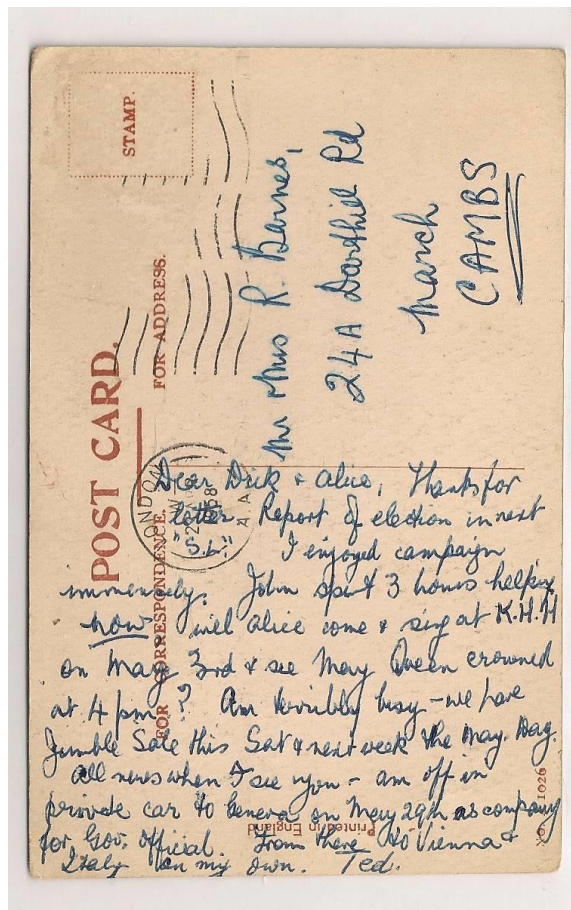 POST CARD.
STAMP.
FOR CORRESPONDENCE.
FOR ADDRESS.
LONDON
1958
A.A
Mr & Mrs R. Barnes,
24A Rd
March
CAMBS
Dear Dick & Alice, Thanks for
letter. Report of election in next
"S.L." I enjoyed campaign
immensely. John spent 3 hours helping
now will Alice come & sing at K.H.H
on May 3rd & see May Queen crowned
at 4 pm? Am terribly busy - we have
Jumble Sale this Sat & next week the May Day.
All news when I see you - am off in
private car to Geneva on May 29th as company
for Gov. official. From there to Vienna &
Italy on my own. Ted.
Printed in England
No. 1026